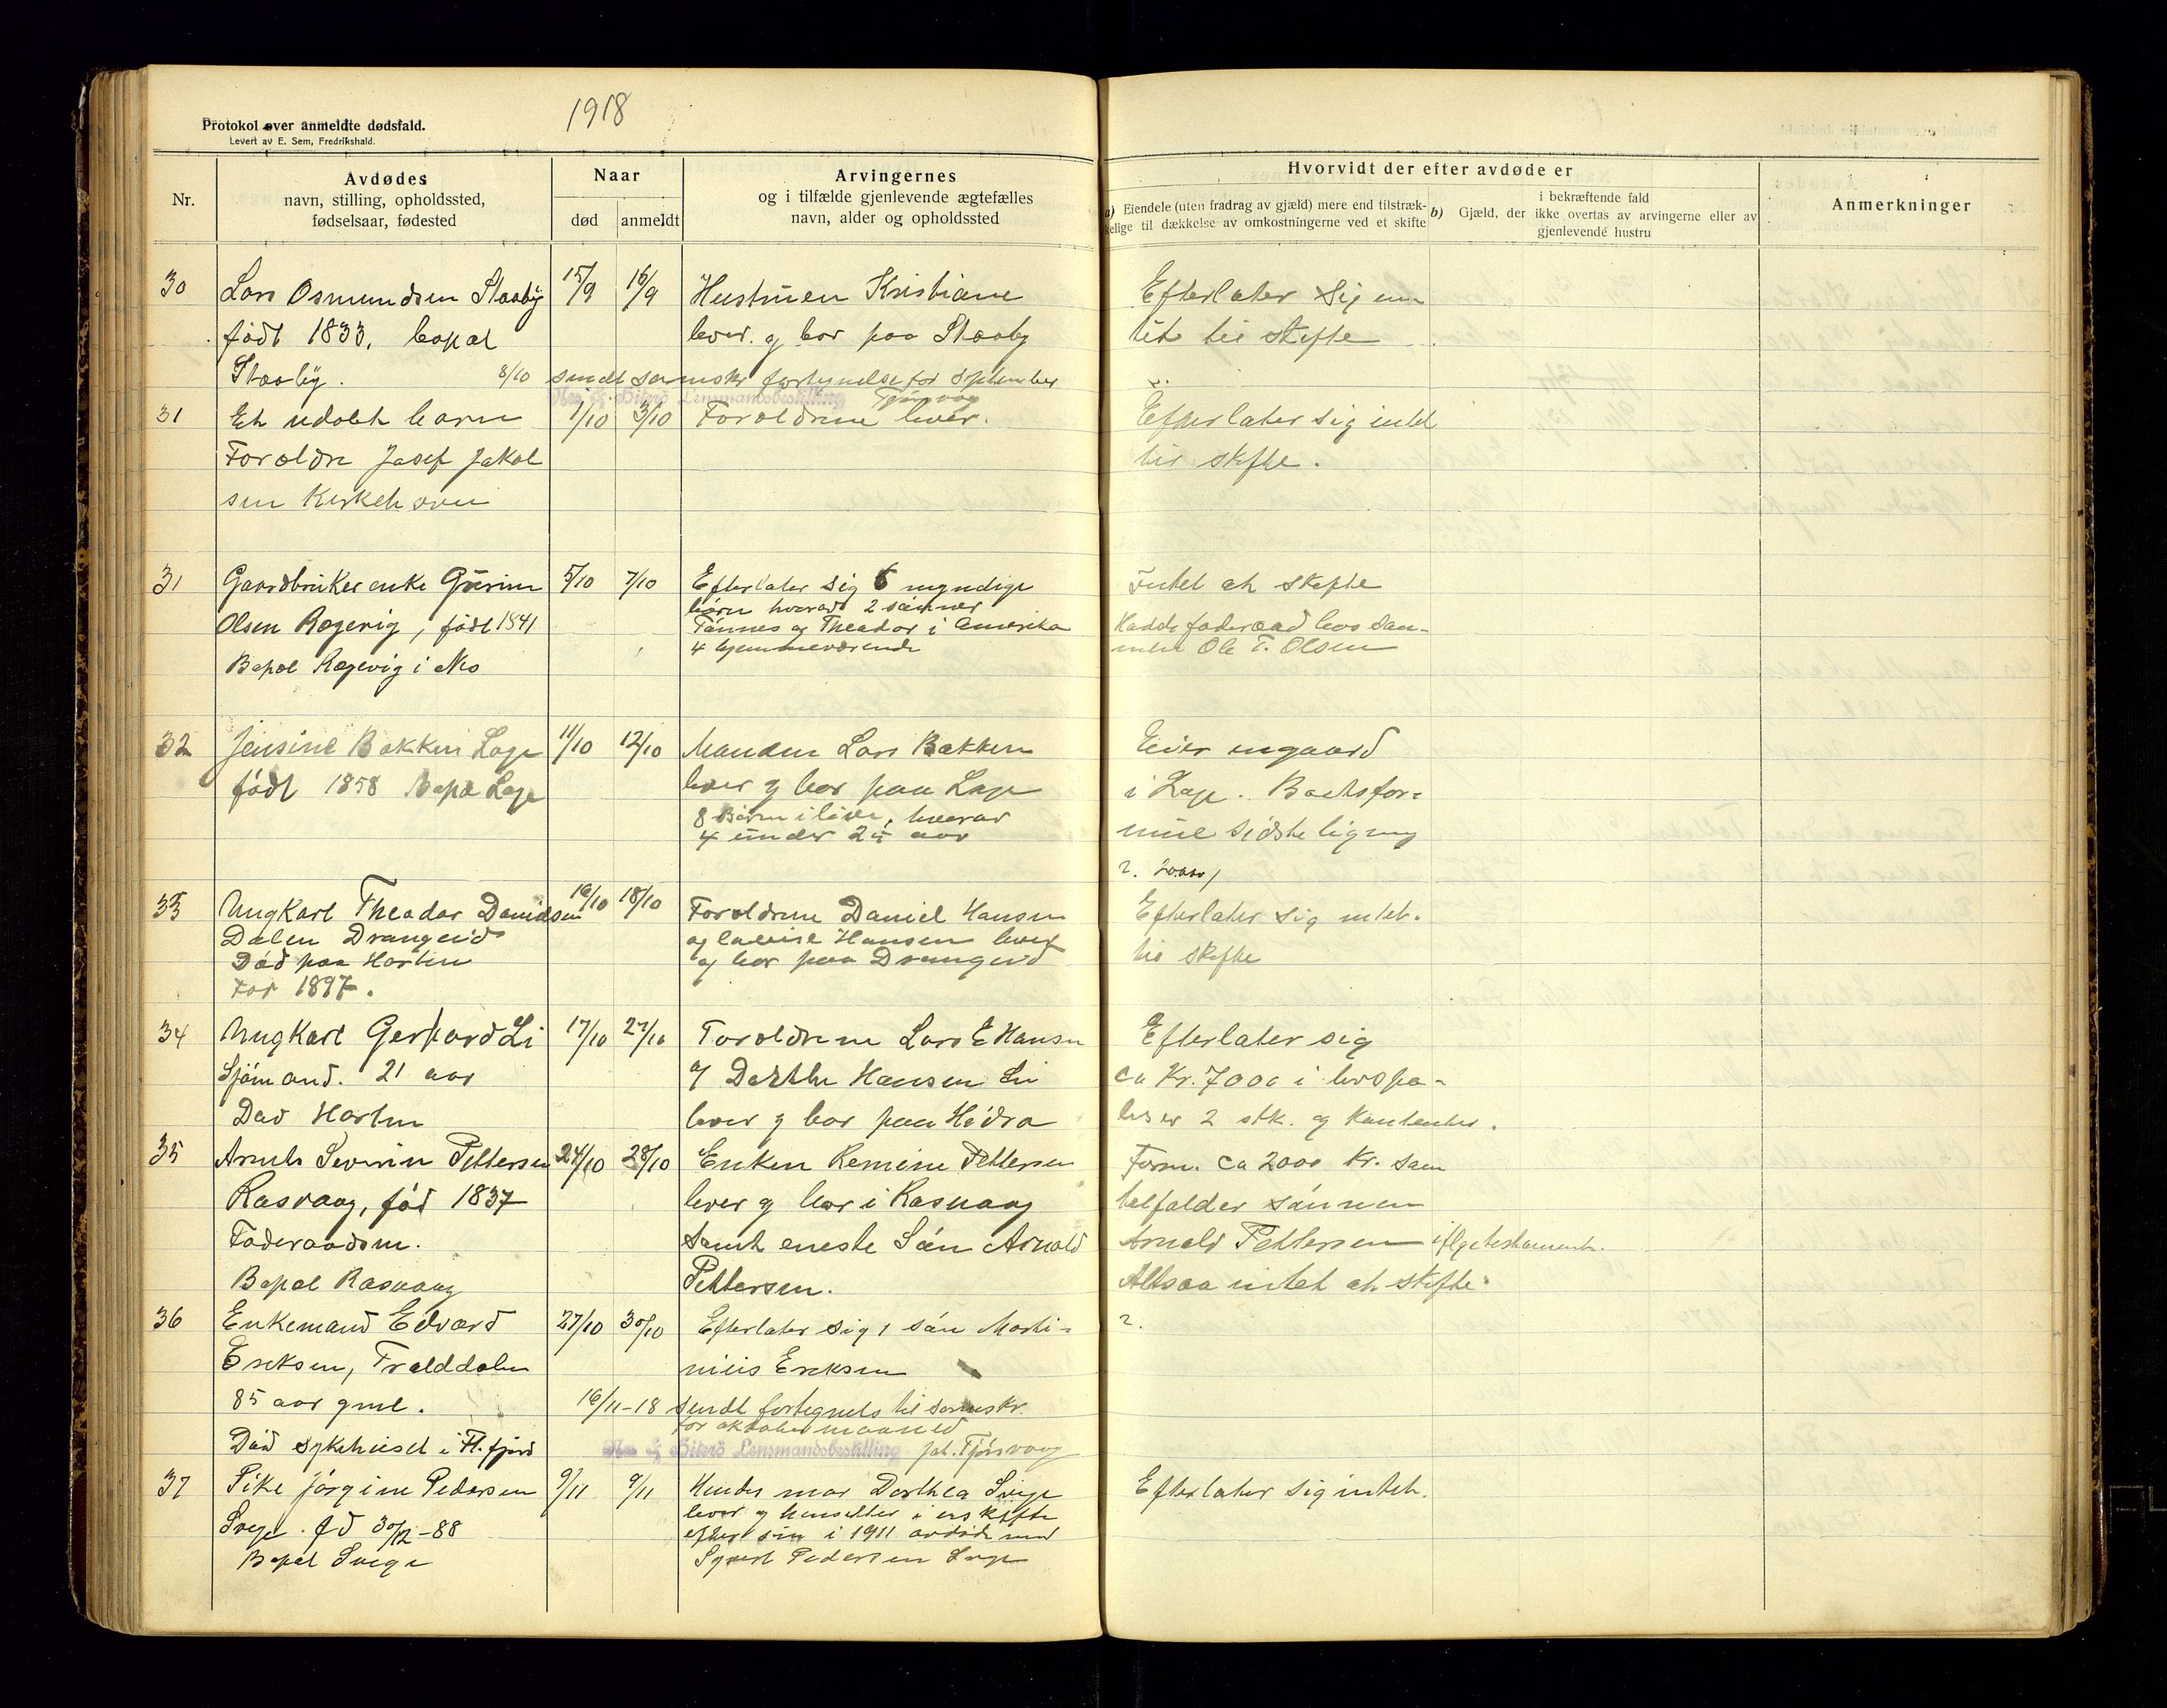 1918
Protokol over anmeldte dødsfald.
Levert av E. Sem, Fredrikshald.
Nr.
Avdødes
navn, stilling, opholdssted,
fødselsaar, fødested
Naar
død
anmeldt
Arvingernes
og i tilfælde gjenlevende ægtefælles
navn, alder og opholdssted
Hvorvidt der efter avdøde er
a) Eiendele (uten fradrag av gjæld) mere end tilstræk-
kelige til dækkelse av omkostningerne ved et skifte
b) Gjæld, der
i bekræftende fald
ikke overtas av arvingerne eller av
gjenlevende hustru
Anmerkninger
30 Lars Osmundsen Staaby 15/9 16/9 Hustruen Kristiane Efterlater sig in
født 1833, bopæl lever og bor paa Staaby tet til skifte
Staaby. 8/10 sendt sorenskr fortegnelse for september
Nes & Hiterö Lensmandsbestilling Tjørsvaag
31 Et udøbt barn 1/10 3/10 Forældrene lever. Efterlater sig intet
Forældre Josef Jakob til skifte.
sen Kirkehavn
31 Gaardbruker enke Gurine 5/10 7/10 Efterlater sig 6 myndige Intet at skifte
børn hvorav 2 sønner
Olsen Rægevig, født 1841 Tønnes og Theodor i Amerika Hadde føderaad hos søn-
4 hjemmeværende nen Ole T. Olsen
Bopæl Rægevig i Nes
32 Jensine Bakken Lage 11/10 12/10 Manden Lars Bakken Eier en gaard
født 1858 Bopæl Lage lever og bor paa Lage i Lage. Boets for-
8 Børn i live, hvorav
4 under 25 aar mue sidste ligning
33 Ungkarl Theodor Danielsen 16/10 18/10 Forældrene Daniel Hansen Efterlater sig intet.
Dalen Drangeid og Hansen lever
Død paa Horten og bor paa Drangeid til skifte
Fød 1897.
34 Ungkarl Gerhard Li 17/10 27/10 Forældrene Lars E Hansen Efterlater sig
Sjømand. 21 aar og Dorthe Hansen Li ca Kr. 7000 i livspo-
Død Horten lever og bor paa Hidra liser 2 stk. og kontanter.
35 Arnts Severin Pettersen 24/10 28/10 Enken Remine Pettersen Form. ca 2000 Kr. som
Rasvaag, fød 1837 lever og bor i Rasvaag tilfalder sønnen
Føderaadsm. samt eneste Søn Arnold Arnold Pettersen iflg testament.
Bopæl Rasvaag Pettersen. Altsaa intet at skifte.
36 Enkemand Edvard 27/10 30/10 Efterlater sig 1 søn Marti- ?.
Eriksen, Trælddalen nius Eriksen
85 aar gml. 16/11-18 sendt fortegnels til sorenskr.
for oktober maaned
Død sykehuset i Fl.fjord Nes & Hiterö Lensmandsbestilling Jak. Tjørsvaag
37 Pike Jørgine Pedersen 9/11 9/11 Hendes mor Dorthea Svege Efterlater sig intet.
lever og hensitter i uskifte
Svege. fd 30/12-88 efter sin i 1911 avdøde mand
Bopæl Svege Syvert Pedersen